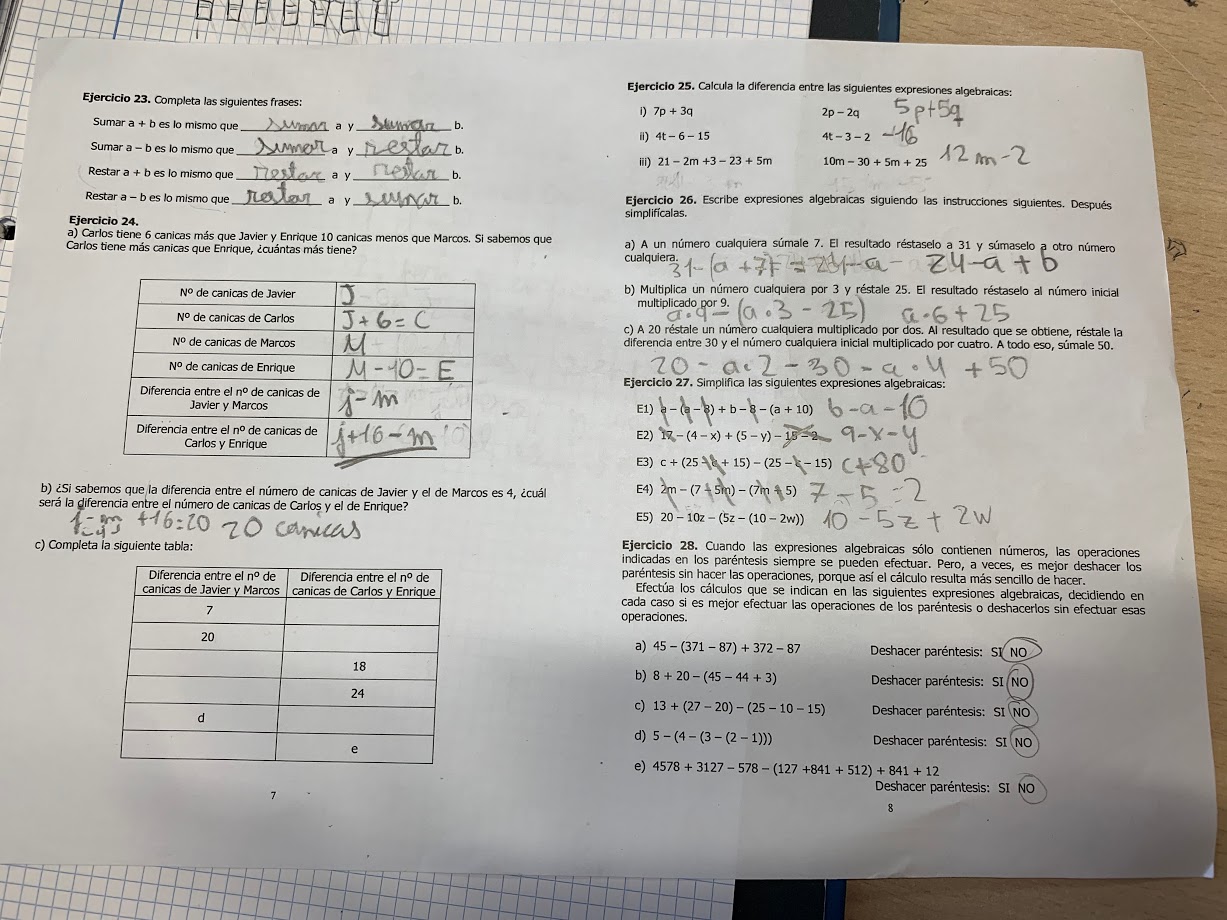 Ejercicio 23. Completa las siguientes frases:
Sumar a + b es lo mismo que sumar a y sumar b.
Sumar a – b es lo mismo que sumar a y restar b.
Restar a + b es lo mismo que restar a y restar b.
Restar a – b es lo mismo que restar a y sumar b.
Ejercicio 24.
a) Carlos tiene 6 canicas más que Javier y Enrique 10 canicas menos que Marcos. Si sabemos que
Carlos tiene más canicas que Enrique, ¿cuántas más tiene?
Nº de canicas de Javier J
Nº de canicas de Carlos J + 6 = C
Nº de canicas de Marcos M
Nº de canicas de Enrique M - 10 = E
Diferencia entre el nº de canicas de
Javier y Marcos j - m
Diferencia entre el nº de canicas de
Carlos y Enrique j + 16 - m
b) ¿Si sabemos que la diferencia entre el número de canicas de Javier y el de Marcos es 4, ¿cuál
será la diferencia entre el número de canicas de Carlos y el de Enrique?
j - m + 16 = 20 20 canicas
c) Completa la siguiente tabla:
Diferencia entre el nº de canicas de Javier y Marcos
Diferencia entre el nº de canicas de Carlos y Enrique
7
20
18
24
d
e
7
Ejercicio 25. Calcula la diferencia entre las siguientes expresiones algebraicas:
i) 7p + 3q 2p – 2q 5p+5q
ii) 4t – 6 – 15 4t – 3 – 2 -16
iii) 21 – 2m +3 – 23 + 5m 10m – 30 + 5m + 25 12m-2
Ejercicio 26. Escribe expresiones algebraicas siguiendo las instrucciones siguientes. Después
simplifícalas.
a) A un número cualquiera súmale 7. El resultado réstaselo a 31 y súmaselo a otro número
cualquiera.
31-(a+7)= 24-a- 24-a+b
b) Multiplica un número cualquiera por 3 y réstale 25. El resultado réstaselo al número inicial
multiplicado por 9. a·9-(a·3-25) a·6+25
c) A 20 réstale un número cualquiera multiplicado por dos. Al resultado que se obtiene, réstale la
diferencia entre 30 y el número cualquiera inicial multiplicado por cuatro. A todo eso, súmale 50.
20 - a·2 - 30 - a·4 + 50
Ejercicio 27. Simplifica las siguientes expresiones algebraicas:
E1) a – (a – 8) + b – 8 – (a + 10) b-a-10
E2) 17 – (4 – x) + (5 – y) – 15 – 2 9-x-y
E3) c + (25 – c + 15) – (25 – c – 15) c+80
E4) 2m – (7 + 5m) – (7m + 5) 7-5=2
E5) 20 – 10z – (5z – (10 – 2w)) 10 - 5z + 2w
Ejercicio 28. Cuando las expresiones algebraicas sólo contienen números, las operaciones
indicadas en los paréntesis siempre se pueden efectuar. Pero, a veces, es mejor deshacer los
paréntesis sin hacer las operaciones, porque así el cálculo resulta más sencillo de hacer.
Efectúa los cálculos que se indican en las siguientes expresiones algebraicas, decidiendo en
cada caso si es mejor efectuar las operaciones de los paréntesis o deshacerlos sin efectuar esas
operaciones.
a) 45 – (371 – 87) + 372 – 87 Deshacer paréntesis: SI NO
b) 8 + 20 – (45 – 44 + 3) Deshacer paréntesis: SI NO
c) 13 + (27 – 20) – (25 – 10 – 15) Deshacer paréntesis: SI NO
d) 5 – (4 – (3 – (2 – 1))) Deshacer paréntesis: SI NO
e) 4578 + 3127 – 578 – (127 +841 + 512) + 841 + 12
Deshacer paréntesis: SI NO
8